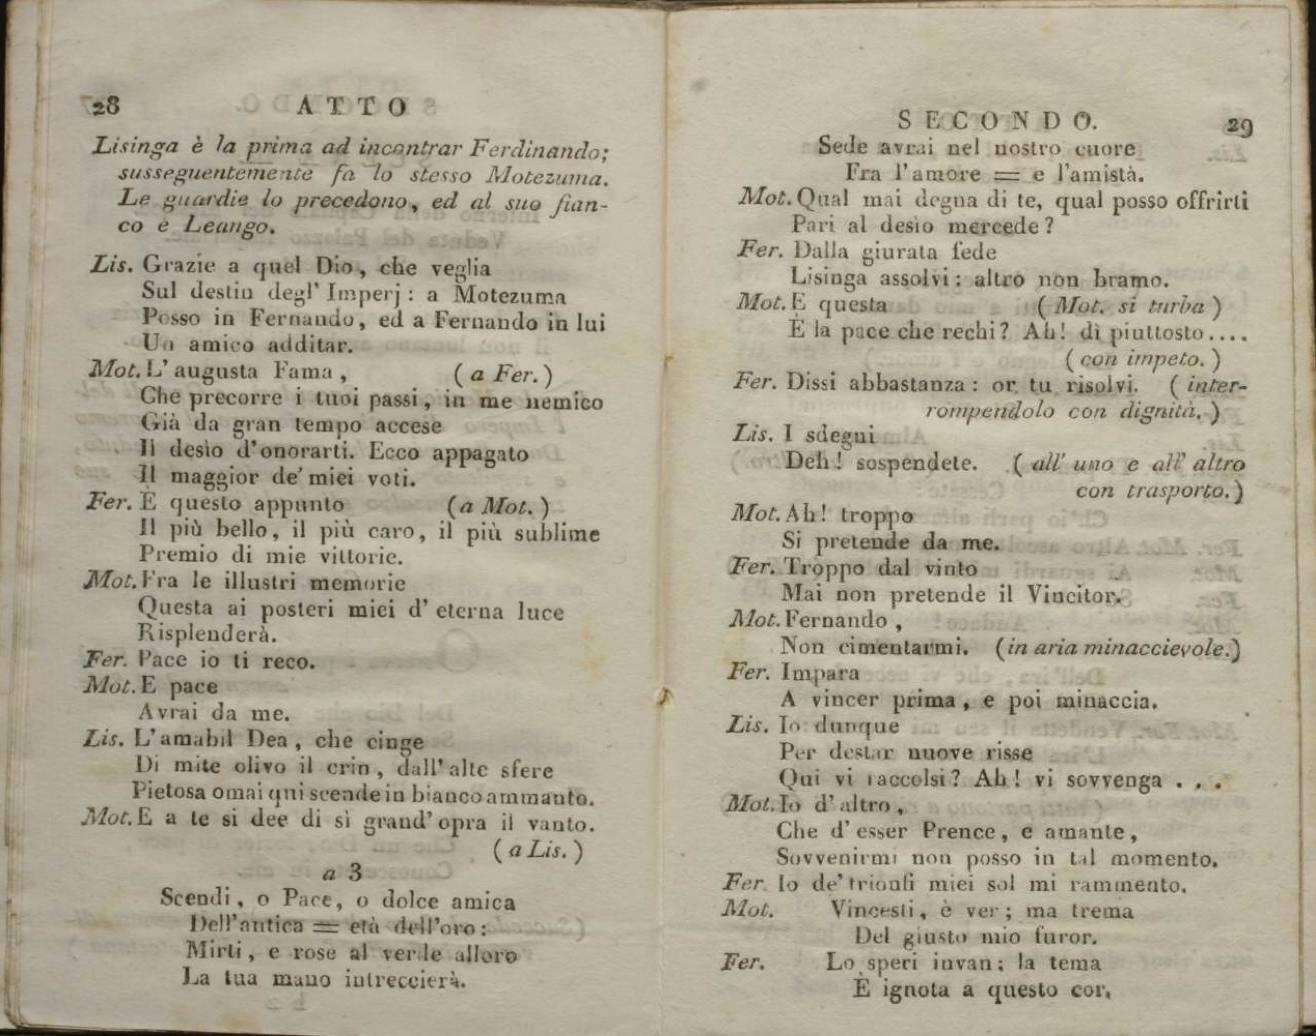 28 ATTO
Lisinga è la prima ad incontrar Ferdinando;
susseguentemente fa lo stesso Motezuma.
Le guardie lo precedono, ed al suo fian-
co è Leango.
Lis. Grazie a quel Dio, che veglia
Sul destin degl' Imperj: a Motezuma
Posso in Fernando, ed a Fernando in lui
Un amico additar.
Mot. L' augusta Fama, (a Fer.)
Che precorre i tuoi passi, in me nemico
Già da gran tempo accese
Il desìo d'onorarti. Ecco appagato
Il maggior de' miei voti.
Fer. È questo appunto (a Mot.)
Il più bello, il più caro, il più sublime
Premio di mie vittorie.
Mot. Fra le illustri memorie
Questa ai posteri miei d' eterna luce
Risplenderà.
Fer. Pace io ti reco.
Mot. E pace
Avrai da me.
Lis. L'amabil Dea, che cinge
Di mite olivo il crin, dall' alte sfere
Pietosa omai qui scende in bianco ammanto.
Mot. E a te si dee di sì grand' opra il vanto.
(a Lis.)
a 3
Scendi, o Pace, o dolce amica
Dell'antica = età dell'oro:
Mirti, e rose al verde alloro
La tua mano intreccierà.
SECONDO. 29
Sede avrai nel nostro cuore
Fra l'amore = e l'amistà.
Mot. Qual mai degna di te, qual posso offrirti
Pari al desìo mercede?
Fer. Dalla giurata fede
Lisinga assolvi: altro non bramo.
Mot. E questa (Mot. si turba)
È la pace che rechi? Ah! dì piuttosto....
(con impeto.)
Fer. Dissi abbastanza: or tu risolvi. (inter-
rompendolo con dignità.)
Lis. I sdegni
Deh! sospendete. (all' uno e all' altro
con trasporto.)
Mot. Ah! troppo
Si pretende da me.
Fer. Troppo dal vinto
Mai non pretende il Vincitor.
Mot. Fernando,
Non cimentarmi. (in aria minaccievole.)
Fer. Impara
A vincer prima, e poi minaccia.
Lis. Io dunque
Per destar nuove risse
Qui vi raccolsi? Ah! vi sovvenga . . .
Mot. Io d' altro,
Che d' esser Prence, e amante,
Sovvenirmi non posso in tal momento.
Fer. Io de' trionfi miei sol mi rammento.
Mot. Vincesti, è ver; ma trema
Del giusto mio furor.
Fer. Lo speri invan: la tema
È ignota a questo cor.